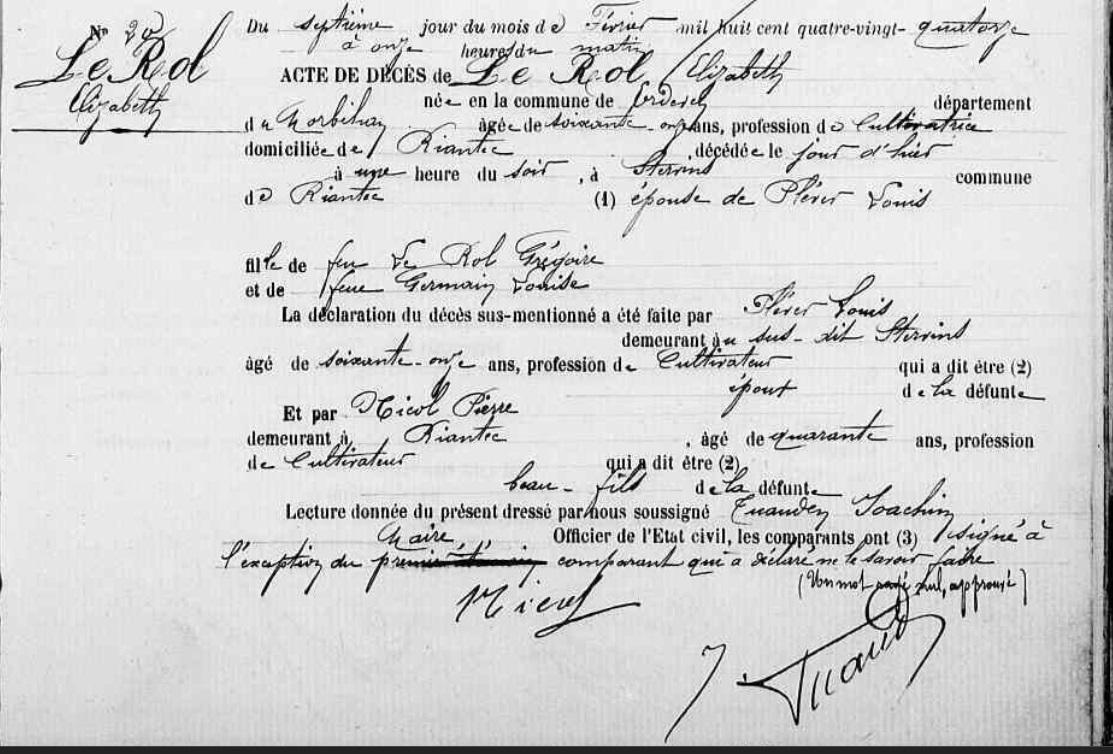 No 20
Le Rol
Elizabeth
Du septième jour du mois de Février mil huit cent quatre-vingt-quatorze
à onze heures du matin
ACTE DE DÉCÈS de Le Rol Elizabeth
née en la commune de Erdeven département
du Morbihan âgée de soixante-onze ans, profession de Cultivatrice
domiciliée de Riantec, décédée le jour d'hier
à une heure du soir, à Stervins commune
de Riantec (1) épouse de Plérer Louis
fille de feu Le Rol Grégoire
et de feue Germain Louise
La déclaration du décès sus-mentionné a été faite par Plérer Louis
demeurant au sus-dit Stervins
âgé de soixante-onze ans, profession de Cultivateur qui a dit être (2)
époux de la défunte
Et par Nicol Pierre
demeurant à Riantec, âgé de quarante ans, profession
de Cultivateur qui a dit être (2)
beau-fils de la défunte
Lecture donnée du présent dressé par nous soussigné Tuauden Joachim
Maire Officier de l'Etat civil, les comparants ont (3) signé à
l'exception du premier comparant qui a déclaré ne le savoir faire
(Un mot rayé nul, approuvé)
Nicol
J Tuaud